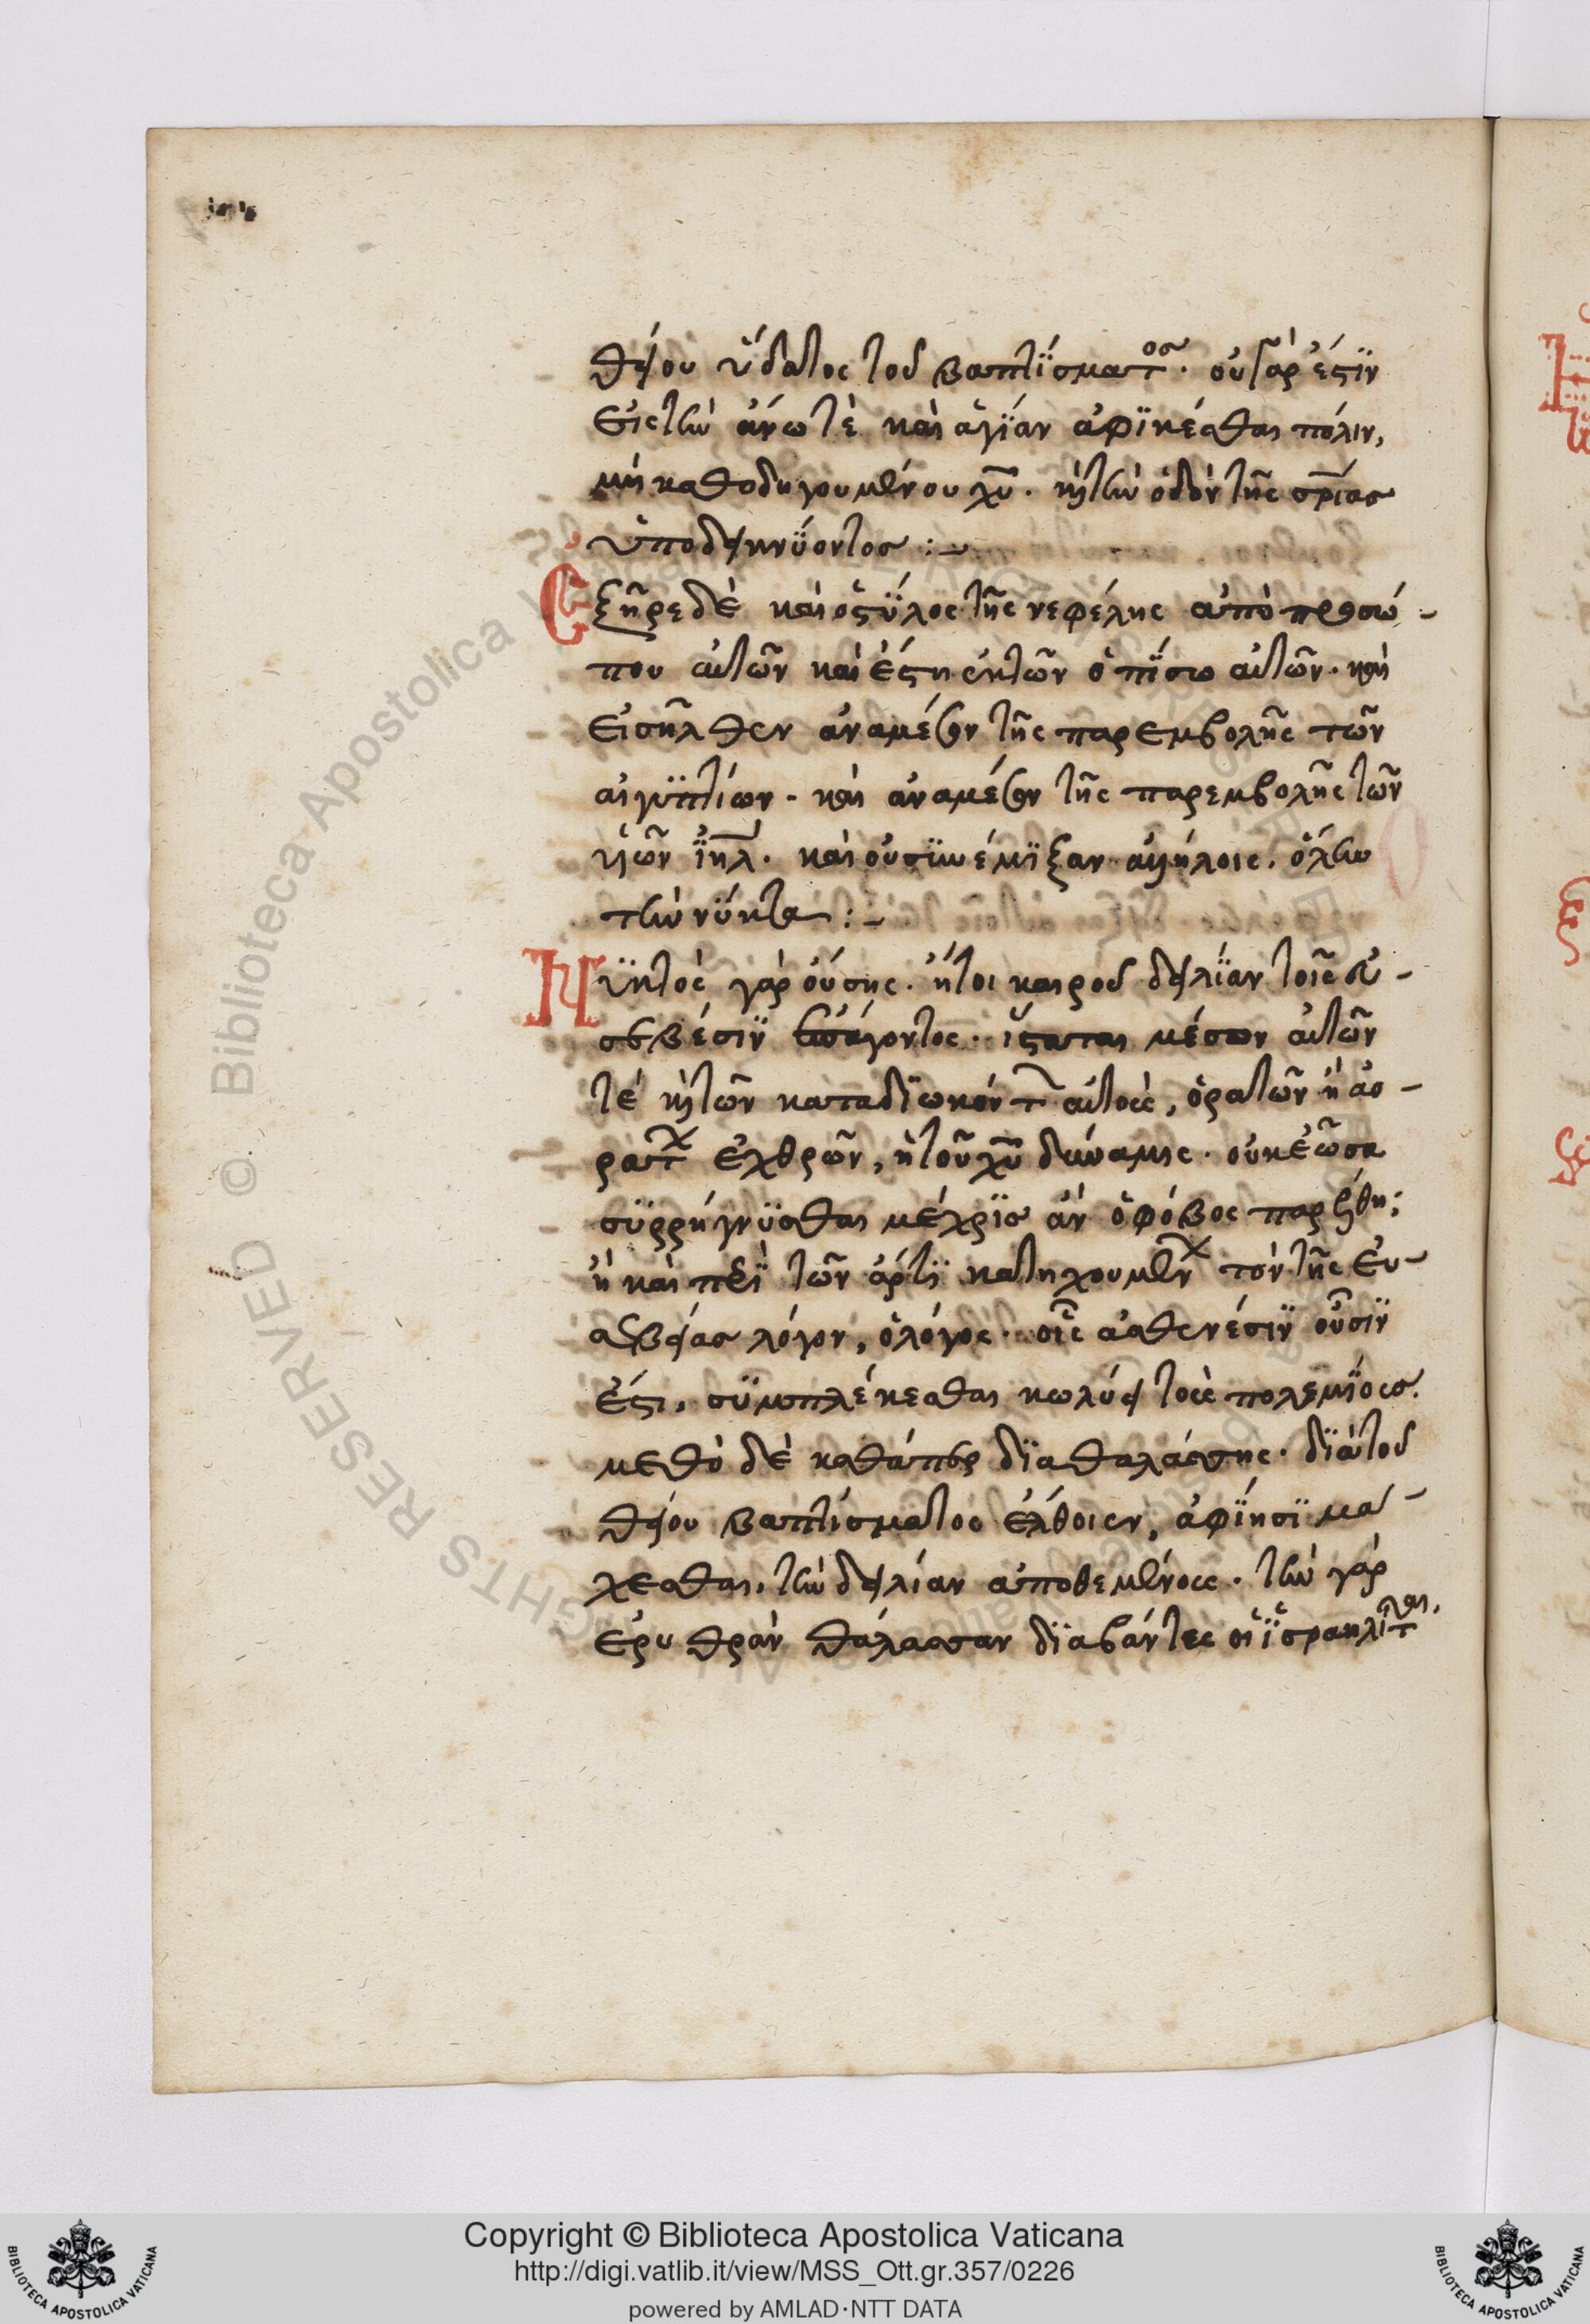 θείου ὕδατος τοῦ βαπτΐσματος· οὐ γάρ ἐστϊν
εἰς τὴν ἄνω τὲ καὶ ἁγΐαν ἀφϊκέσθαι πόλιν,
μὴ καθοδηγουμένου χῦ· κ τὴν ὁδὸν τῆς σρίας
ὑποδεικνΰοντος :~
Ἐξῆρε δὲ καὶ ὁ στΰλος τῆς νεφέλης ἀπὸ προσώ-
που αὐτῶν καὶ ἔστη ἐκ τῶν ὀπΐσω αὐτῶν· καὶ
εἰσῆλθεν ἀναμέσον τῆς παρεμβολῆς τῶν
αἰγϋπτίων· καὶ ἀναμέσον τῆς παρεμβολῆς τῶν
υἱῶν ϊηλ· καὶ οὐ σϋνέμϊξαν ἀλλήλοις· ὅλην
τὴν νΰκτα :~
Νϋκτὸς γὰρ οὔσης· ἤτοι καιροῦ δειλΐαν τοῖς εὐ-
σεβέσϊν ἐπάγοντος· ἵσταται μέσον αὐτῶν
τέ κ τῶν καταδϊωκόντων αὐτοὺς, ὁρατῶν ἢ ἀο-
ράτων ἐχθρῶν, ἡ τοῦ χῦ δύναμις· οὐκ ἐῶσα
σϋρρήγνϋσθαι μέχρϊς ἂν ὁ φόβος παρέλθῃ;
ἢ καὶ περϊ τῶν ἄρτϊ κατηχουμένων τὸν τῆς εὐ-
σεβείας λόγον, ὁ λόγος· οἷς ἀσθενέσϊν οὖσϊν
ἔτι, σϋμπλέκεσθαι κωλύει τοὺς πολεμΐους.
μεθὸ δὲ καθάπερ δϊὰ θαλάσσης· δϊὰ τοῦ
θείου βαπτίσματος ἔλθοιεν, ἀφΐησϊ μά-
χεσθαι, τὴν δειλίαν ἀποθεμένους· τὴν γὰρ
ἐρυθρὰν θάλασσαν δϊαβάντες οἱ ϊσραηλῖται,
Copyright © Biblioteca Apostolica Vaticana
http://digi.vatlib.it/view/MSS_Ott.gr.357/0226
powered by AMLAD·NTT DATA
BIBLIOTECA APOSTOLICA VATICANA
BIBLIOTECA APOSTOLICA VATICANA